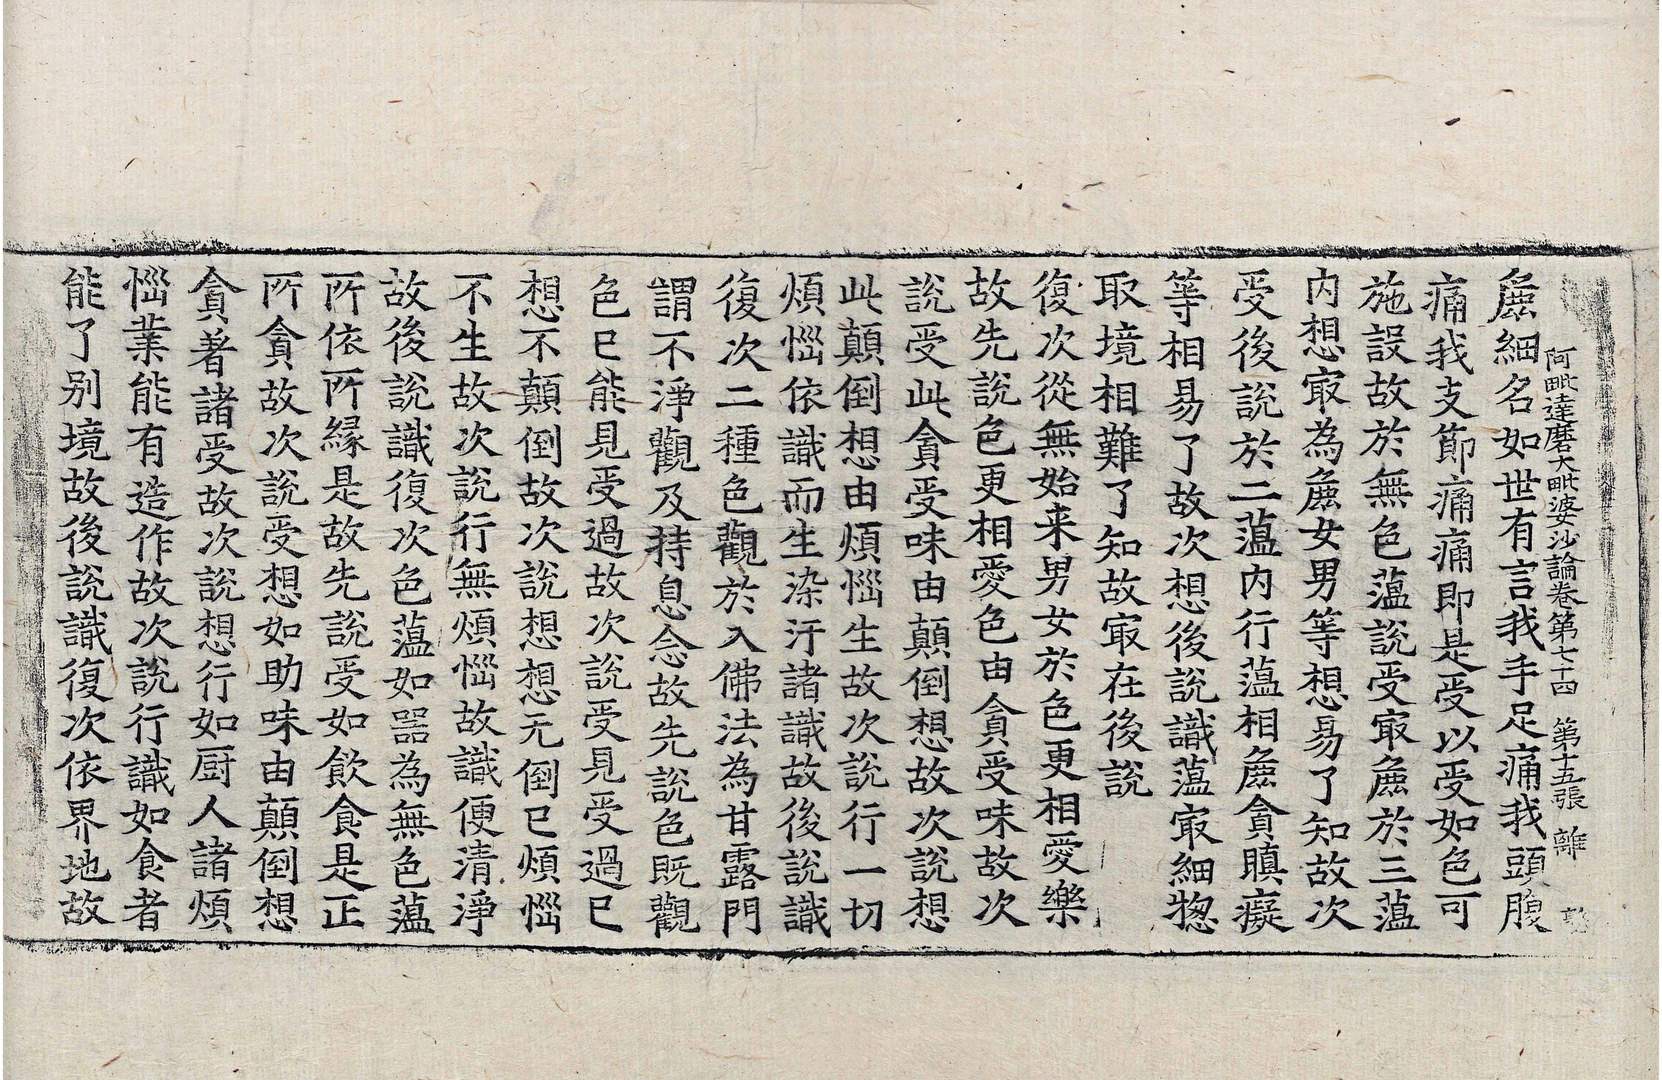 阿毗達磨大毗婆沙論卷第七十四　第十五張　離
麁細名如世有言我手足痛我頭腹
痛我支節痛痛即是受以受如色可
施設故於無色蘊說受㝡麁於三蘊
内想㝡為麁女男等想易了知故次
受後說於二蘊内行蘊相麁貪瞋癡
等相易了故次想後說識蘊㝡細揔
取境相難了知故㝡在後說
復次從無始来男女於色更相愛樂
故先說色更相愛色由貪受味故次
說受此貪受味由顛倒想故次說想
此顛倒想由煩惱生故次說行一切
煩惱依識而生染汙諸識故後說識
復次二種色觀於入佛法為甘露門
謂不淨觀及持息念故先說色既觀
色已能見受過故次說受見受過已
想不顛倒故次說想想无倒已煩惱
不生故次說行無煩惱故識便清淨
故後說識復次色蘊如器為無色蘊
所依所緣是故先說受如飲食是正
所貪故次說受想如助味由顛倒想
貪著諸受故次說想行如厨人諸煩
惱業能有造作故次說行識如食者
能了别境故後說識復次依界地故